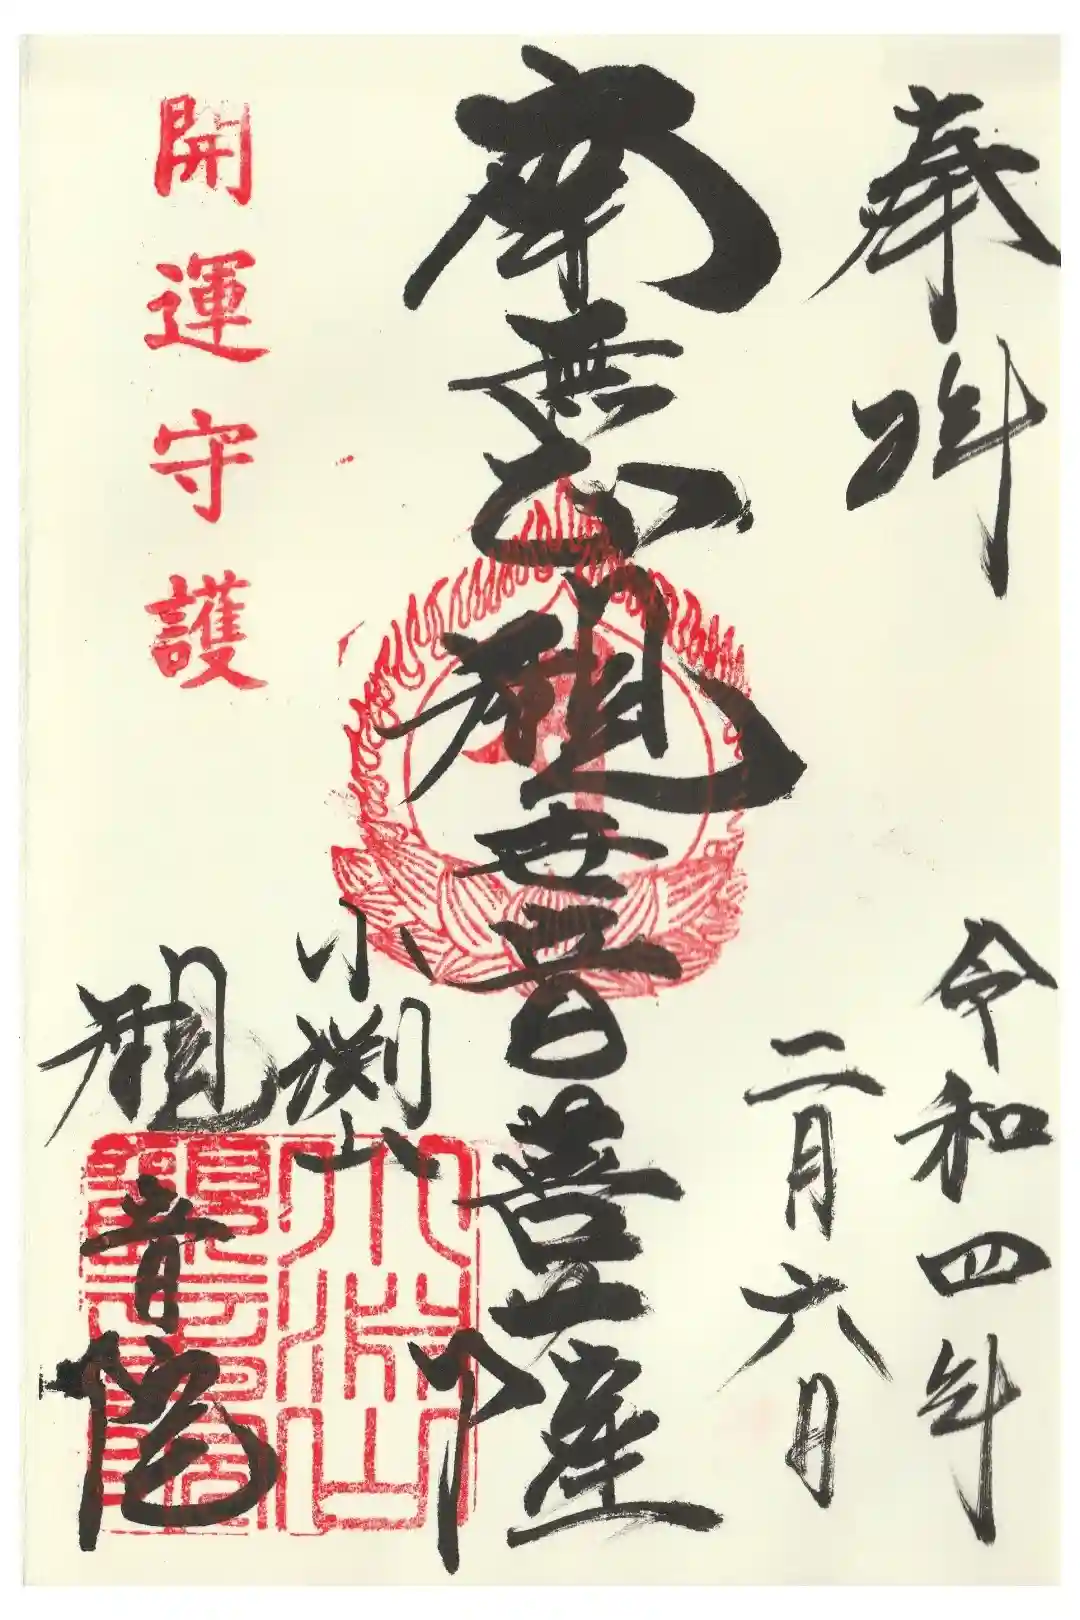 奉拝
令和四年
二月六日
南無大観世音菩薩
小渕山
観音院
開運守護
小渕山
観音院